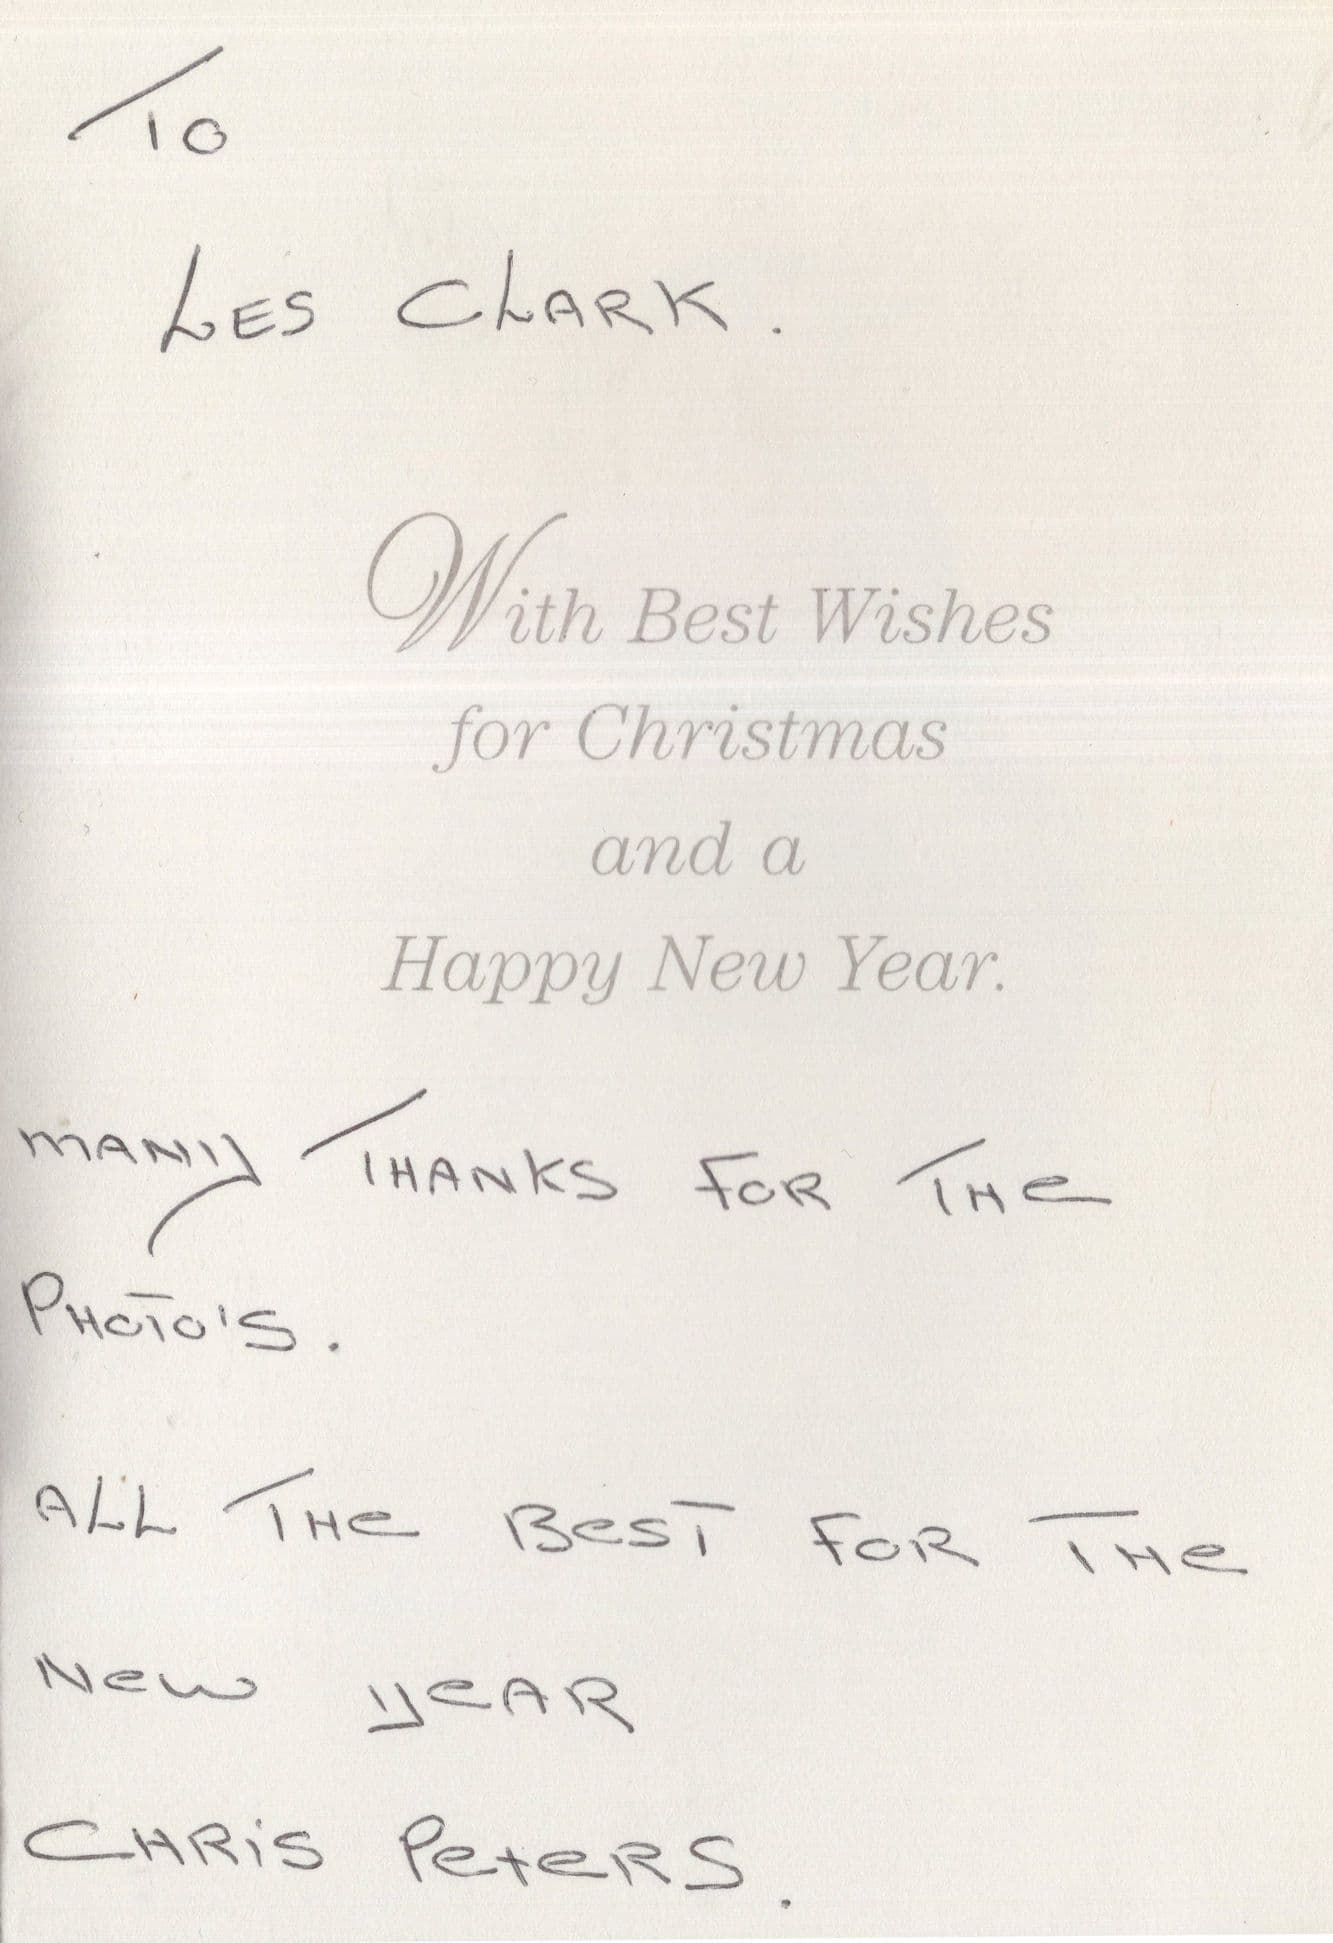 TO
LES CLARK.
With Best Wishes
for Christmas
and a
Happy New Year.
MANY THANKS FOR THE
PHOTO'S.
ALL THE BEST FOR THE
NEW YEAR
CHRIS PETERS.